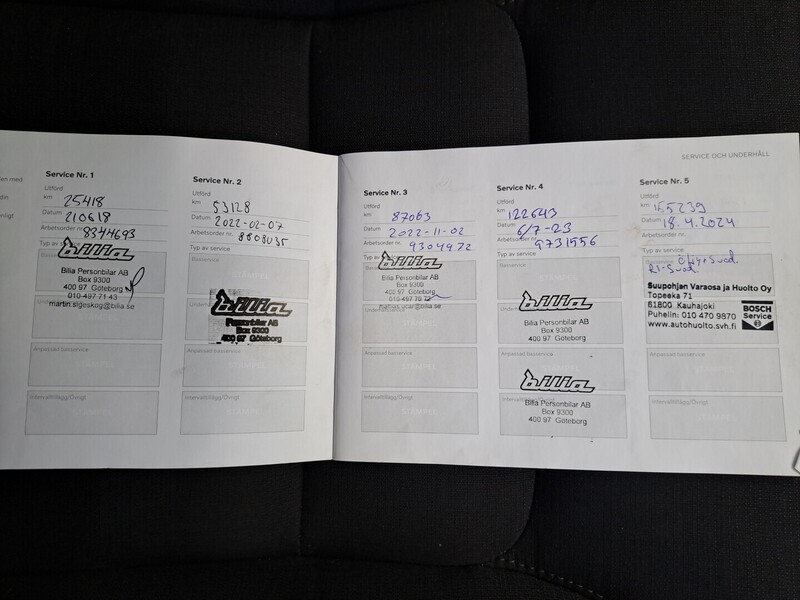 SERVICE OCH UNDERHÅLL
Service Nr. 1
Utförd
km 25418
Datum 210618
Arbetsorder nr. 8344693
Typ av service
Basservice
bilia
Bilia Personbilar AB
Box 9300
400 97 Göteborg
010-497 71 43
martin.sigeskog@bilia.se
Anpassad basservice
Intervalltillägg/Övrigt
Service Nr. 2
Utförd
km 53128
Datum 2022-02-07
Arbetsorder nr. 8808035
Typ av service
Basservice
bilia
Personbilar AB
Box 9300
400 97 Göteborg
Anpassad basservice
Intervalltillägg/Övrigt
Service Nr. 3
Utförd
km 87063
Datum 2022-11-02
Arbetsorder nr. 9304972
Typ av service
bilia
Bilia Personbilar AB
Box 9300
400 97 Göteborg
Anpassad basservice
Intervalltillägg/Övrigt
Service Nr. 4
Utförd
km 122643
Datum 6/7-23
Arbetsorder nr. 9731556
Typ av service
Basservice
bilia
Bilia Personbilar AB
Box 9300
400 97 Göteborg
Anpassad basservice
bilia
Bilia Personbilar AB
Box 9300
400 97 Göteborg
Service Nr. 5
Utförd
km 155239
Datum 18.4.2024
Arbetsorder nr.
Typ av service
Basservice
Suupohjan Varaosa ja Huolto Oy
Topeeka 71
61800 Kauhajoki
Puhelin: 010 470 9870
www.autohuolto.svh.fi
BOSCH
Service
Anpassad basservice
Intervalltillägg/Övrigt